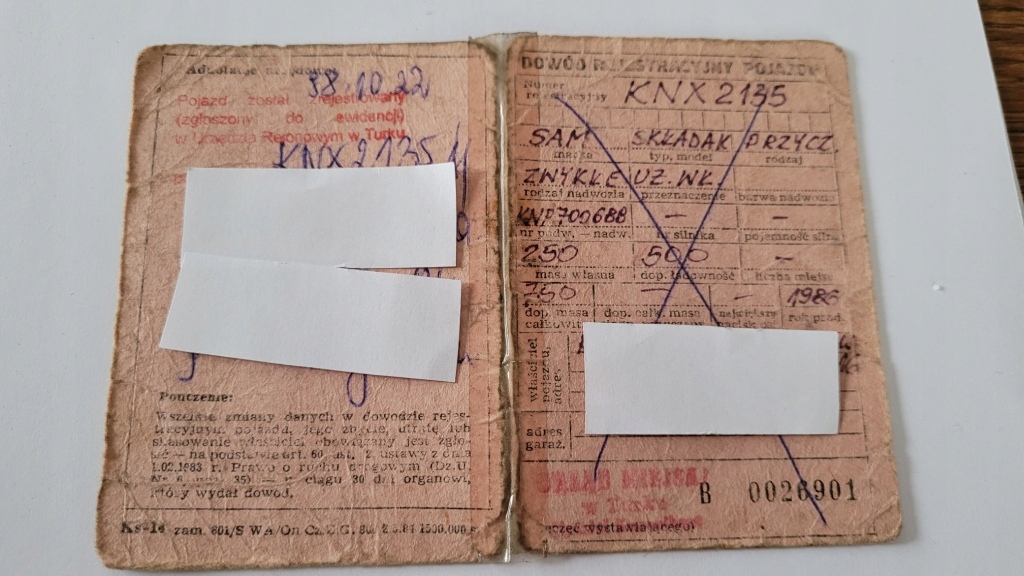 Adnotacje urzędowe
38.10.22
Pojazd został zrejestrowany
(zgłoszony do ewidencji)
w Urzędzie Rejonowym w Turku
KNX 2135
Pouczenie:
Wszelkie zmiany danych w dowodzie rejes-
tracyjnym pojazdu, jego zbycie, utratę lub
skasowanie właściciel obowiązany jest zgło-
sić — na podstawie art. 60, ust. 2 ustawy z dnia
1.02.1983 r. Prawo o ruchu drogowym (Dz.U.
Nr 6 poz. 35) — w ciągu 30 dni organowi,
który wydał dowód.
Ks-1e zam. 801/S WA/On
DOWÓD REJESTRACYJNY POJAZDU
Numer
rejestracyjny KNX 2135
SAM SKŁADAK PRZYCZ.
marka typ, model rodzaj
ZWYKŁE UZ. WŁ.
rodzaj nadwozia przeznaczenie barwa nadwozia
KNP700688 — —
nr podw. — nadw. nr silnika pojemność siln.
250 500 —
masa własna dop. ładowność liczba miejsc
750 — — 1986
dop. masa dop. całk. masa największy rok prod.
całkowit.
właściciel
pojazdu,
adres
adres
garaż.
URZĄD MIEJSKI
w Turku
B 0026901
(pieczęć wystawiającego)